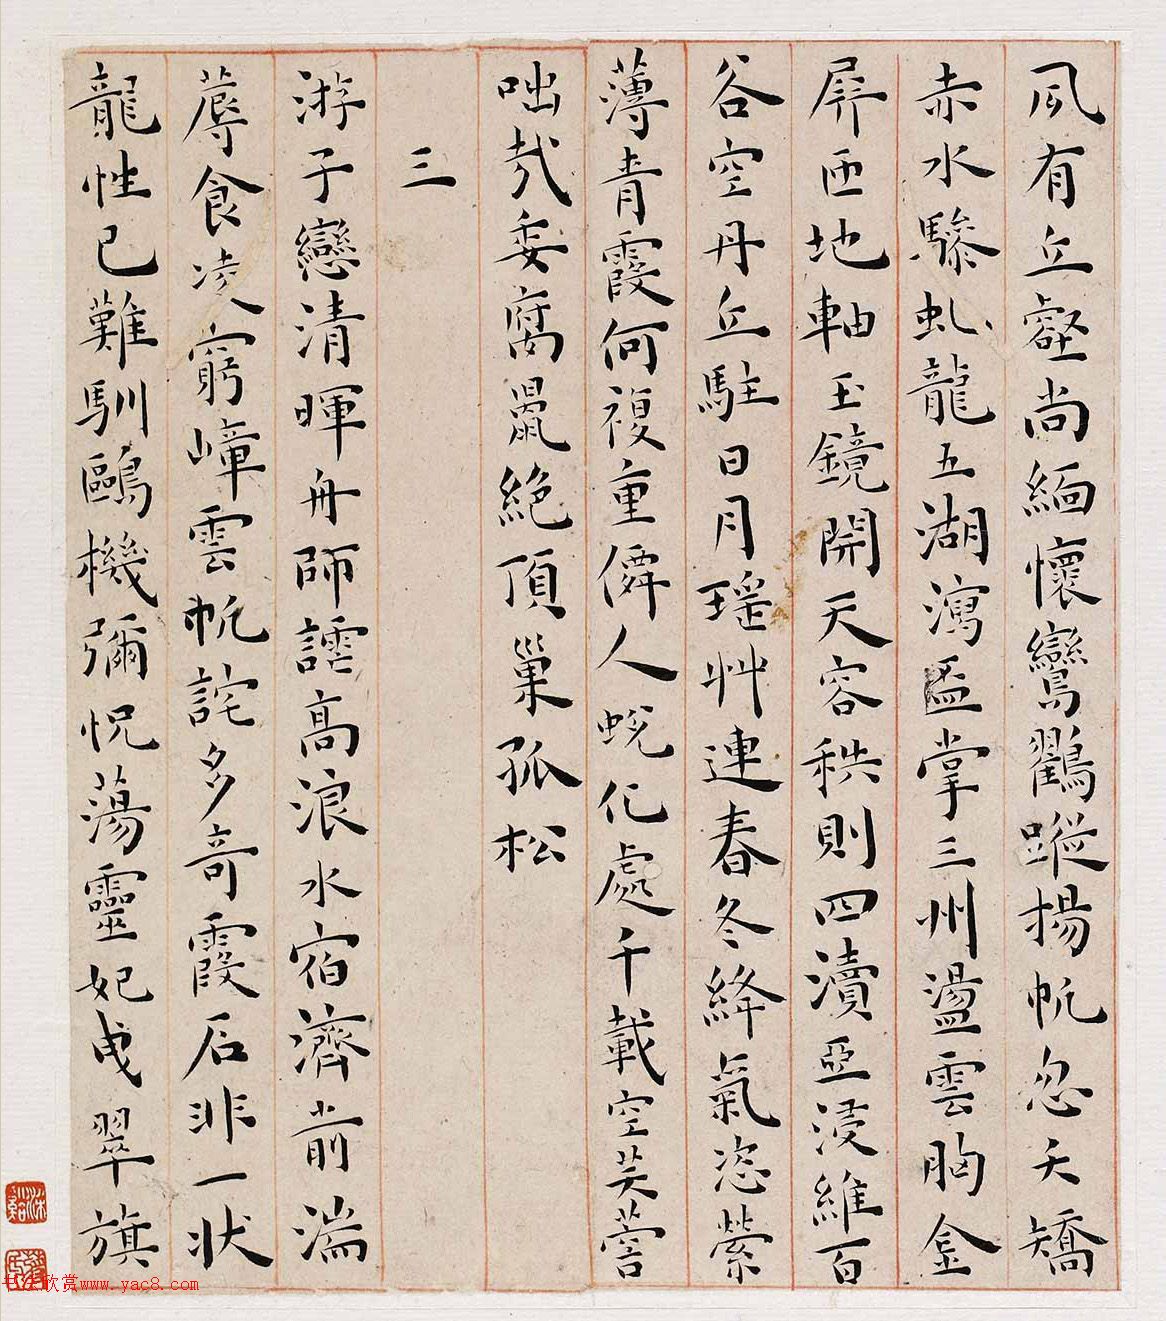 風有丘壑尚緬懷鸞鸛蹤揚帆忽夭矯
赤水驂虬龍五湖瀉盃掌三州盪雲胸金
屏匝地軸玉鏡開天容秩則四瀆亞浸維百
谷空丹丘駐日月瑤艸連春冬絳氣恣縈
薄青霞何複重僊人蛻化處千載空芙蓉
咄哉委腐鼠絕頂巢孤松
三
游子戀清暉舟師譁高浪水宿濟前湍
蓐食凌窮嶂雲帆詫多奇霞石非一狀
龍性已難馴鷗機彌怳蕩靈妃曳翠旗
书法欣赏www.yac8.com